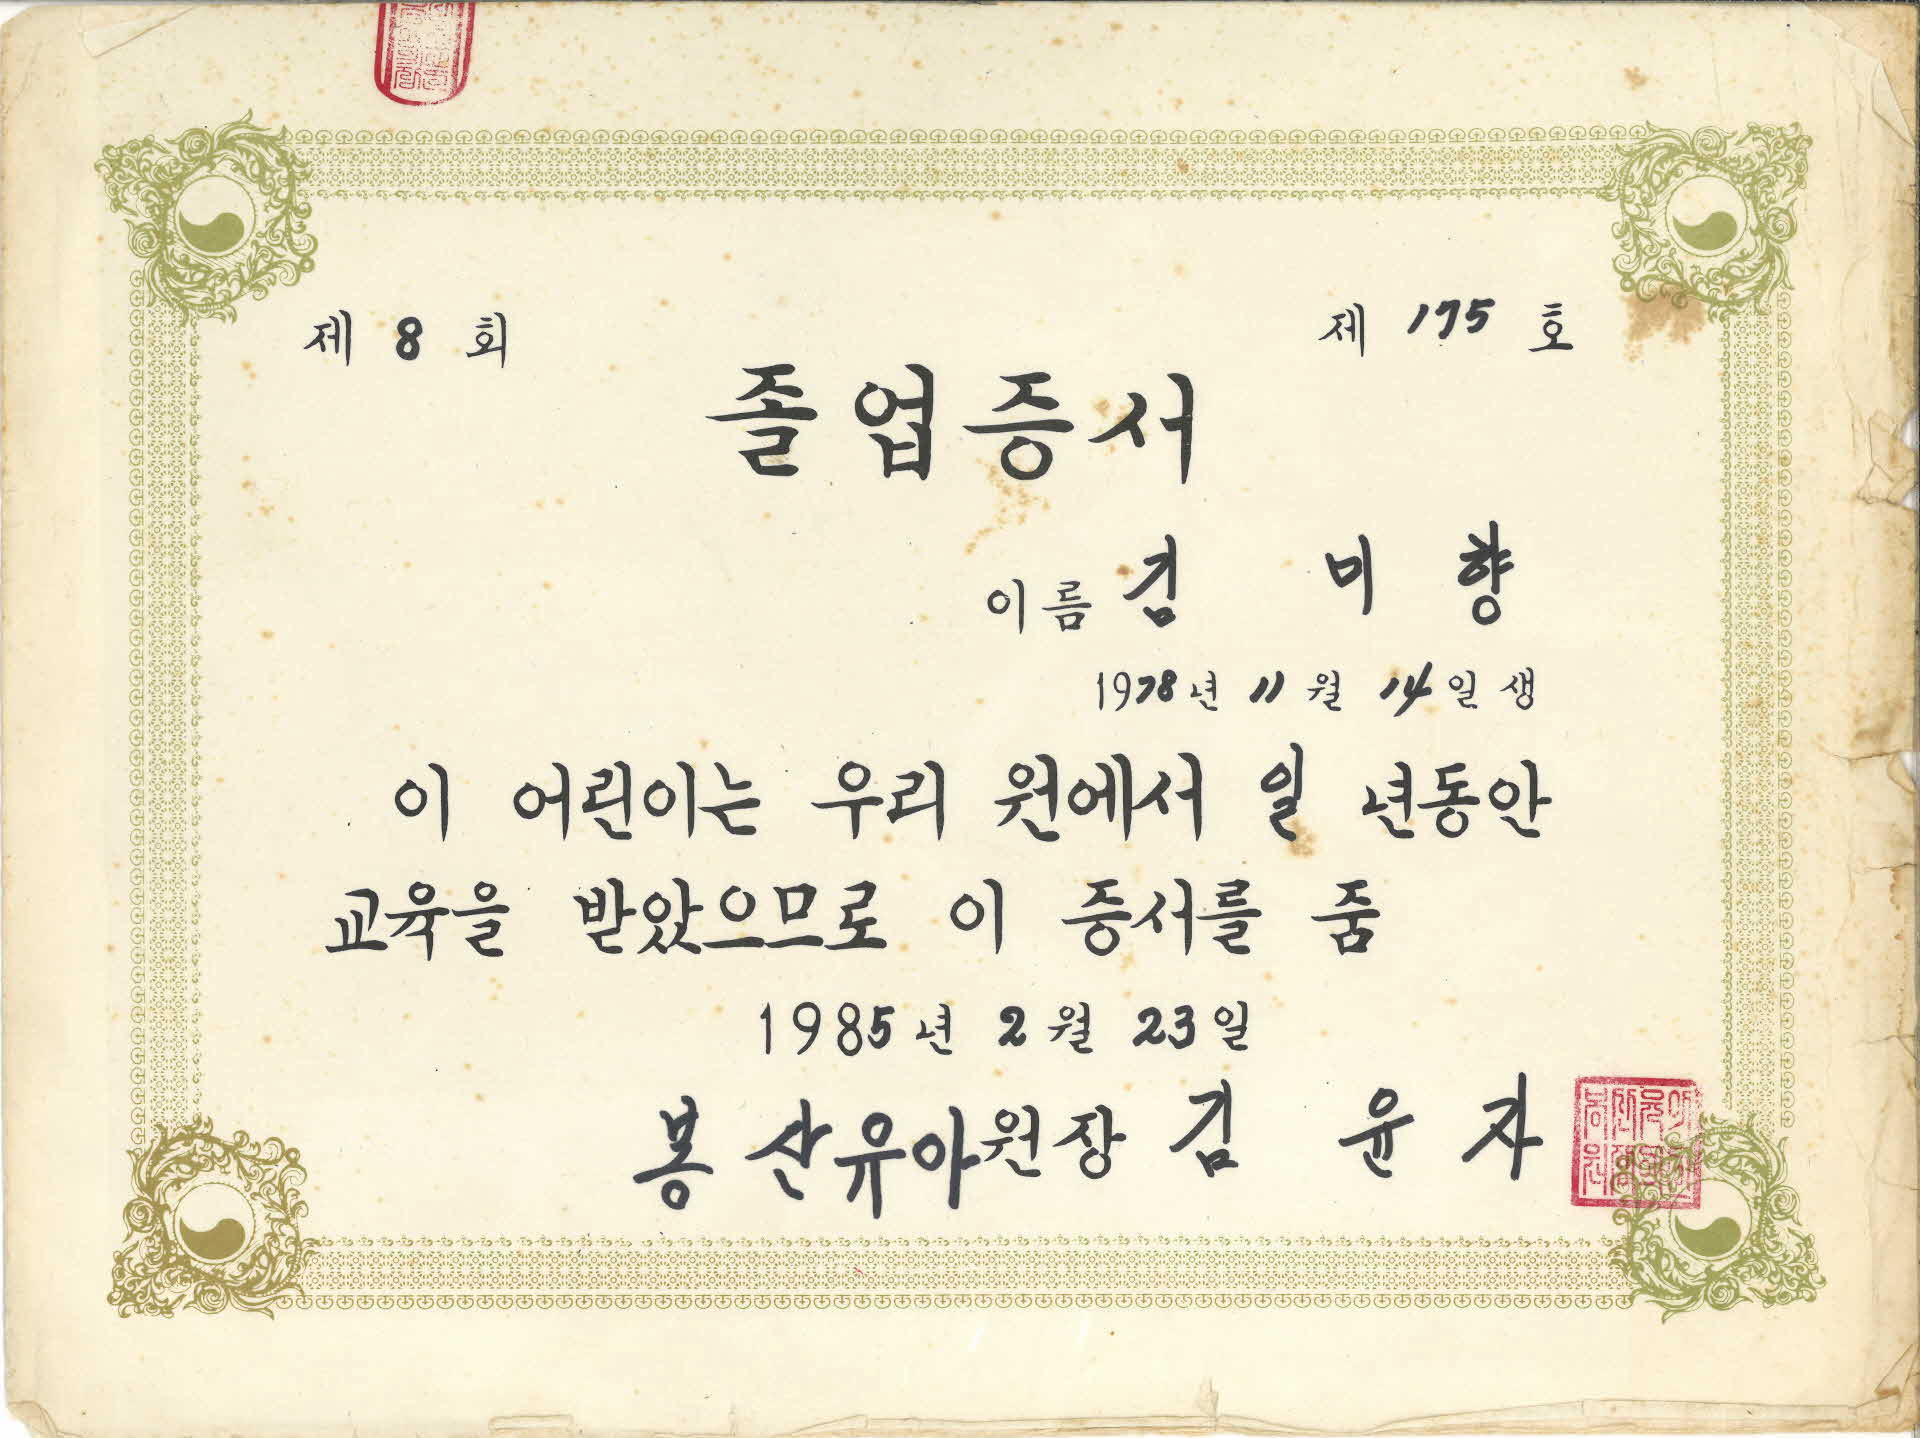 제 8 회
제 175 호
졸업증서
이름 김 미 향
1978년 11월 14일생
이 어린이는 우리 원에서 일 년동안
교육을 받았으므로 이 증서를 줌
1985년 2월 23일
봉산유아원장 김 윤 자